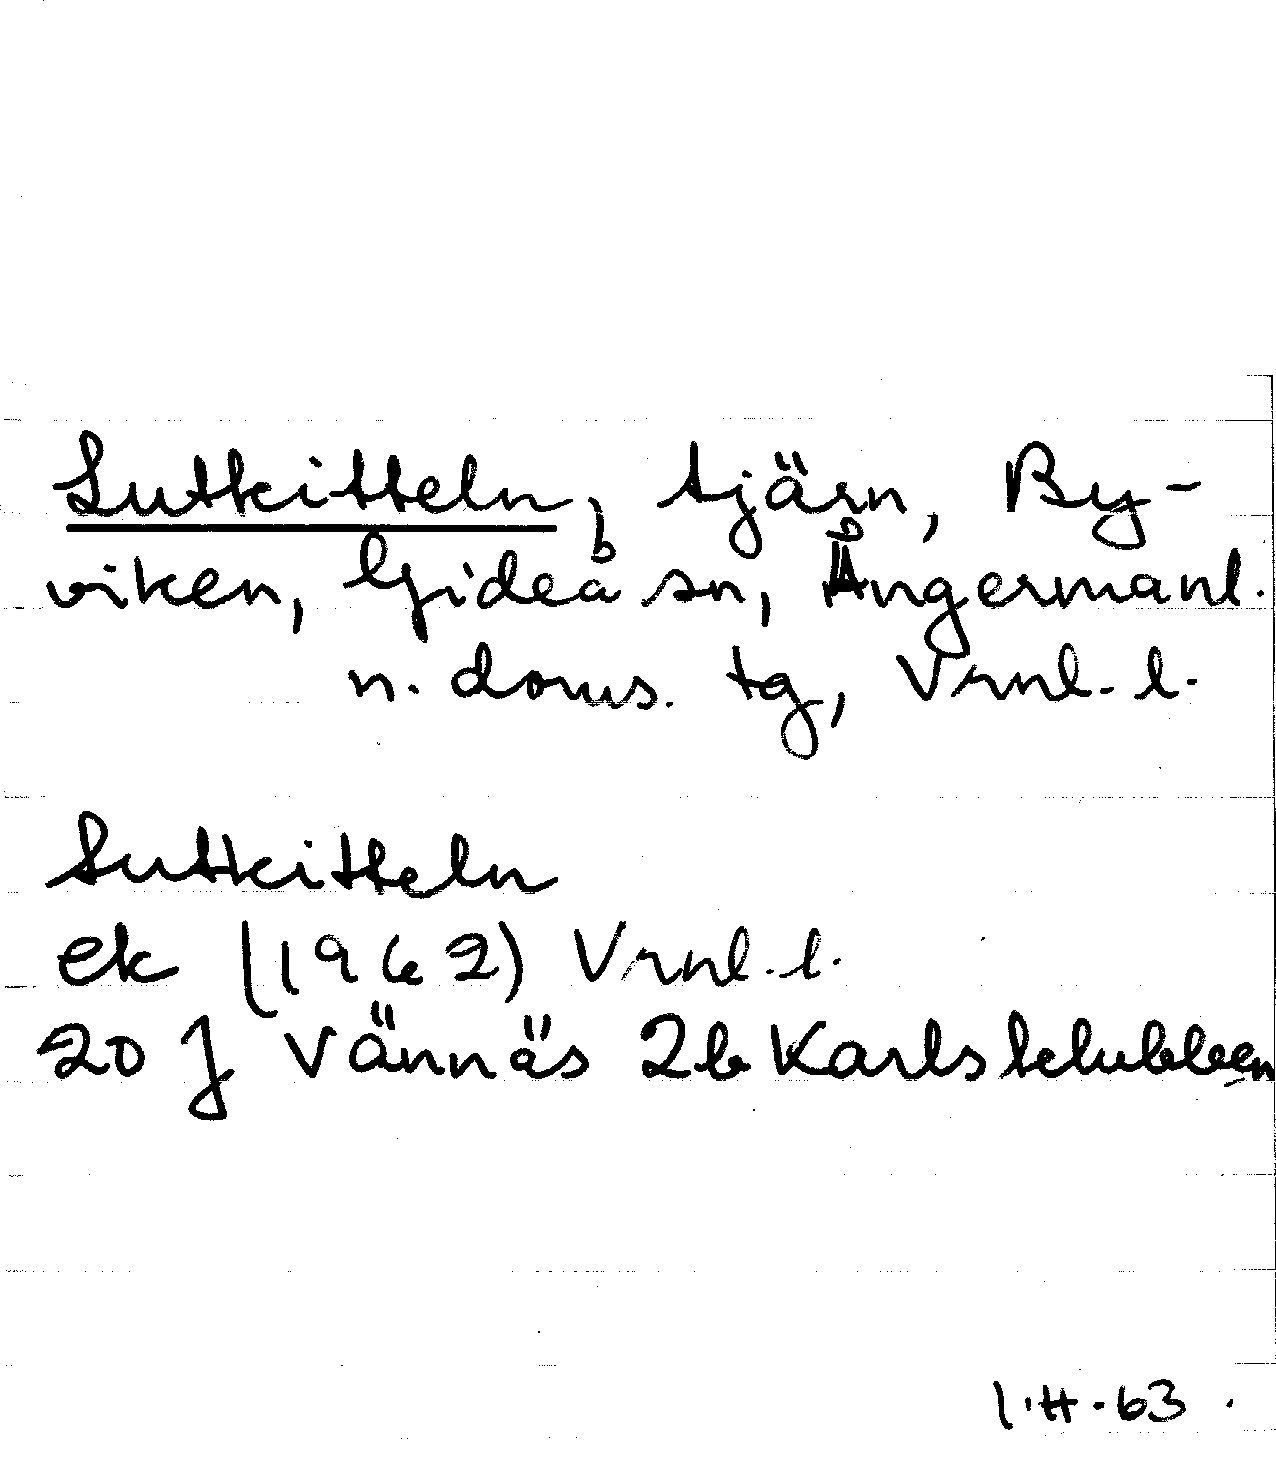 Lutkitteln, tjärn, By-
viken, Gideå sn, Ångermanl.
n. doms. tg, Vrnl. l.
Lutkitteln
ek (1962) Vrnl. l.
20 J Vännäs 2b Karlsklubben
I.H.63.